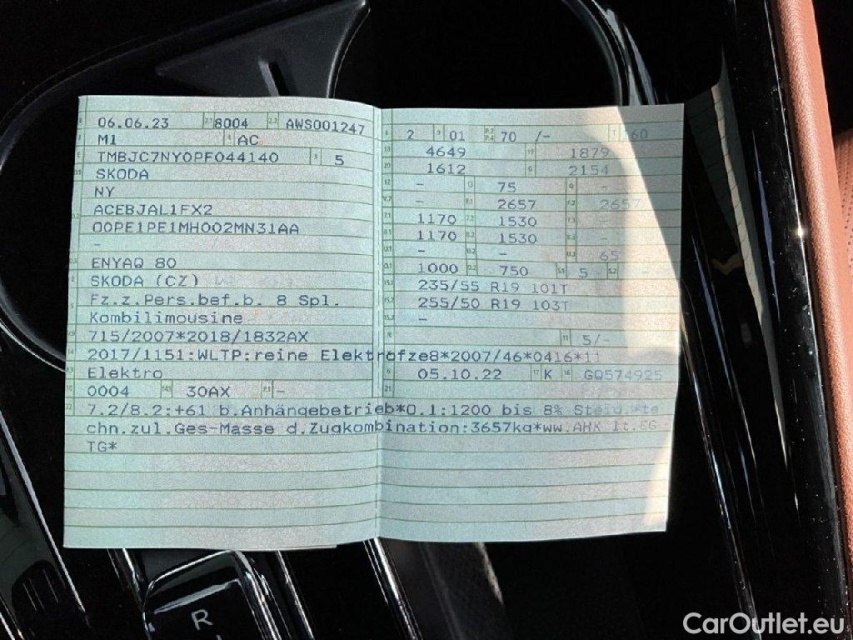 06.06.23 8004 AWS001247
M1 AC
TMBJC7NY0PF044140 5
SKODA
NY
ACEBJAL1FX2
00PE1PE1MH002MN31AA
-
ENYAQ 80
SKODA (CZ)
Fz.z.Pers.bef.b. 8 Spl.
Kombilimousine
715/2007*2018/1832AX
2017/1151:WLTP:reine Elektrofze8*2007/46*0416*11
Elektro
0004 30AX -
2 01 70 /- 160
4649 1879
1612 2154
- 75 -
- 2657 2657
1170 1530 -
1170 1530 -
- - 65
1000 750 5 -
235/55 R19 101T
255/50 R19 103T
-
5/-
05.10.22 K GQ574925
7.2/8.2:+61 b.Anhängebetrieb*0.1:1200 bis 8% Steig.*te
chn.zul.Ges-Masse d.Zugkombination:3657kg*ww.AHK lt.EG
TG*
R
CarOutlet.eu